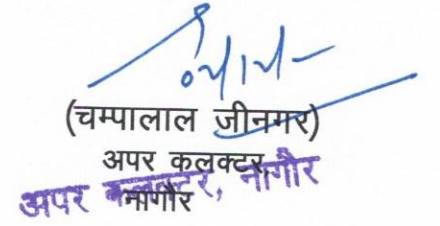 (चम्पालाल जीनगर)
अपर कलक्टर,
नागौर
अपर कलक्टर, नागौर